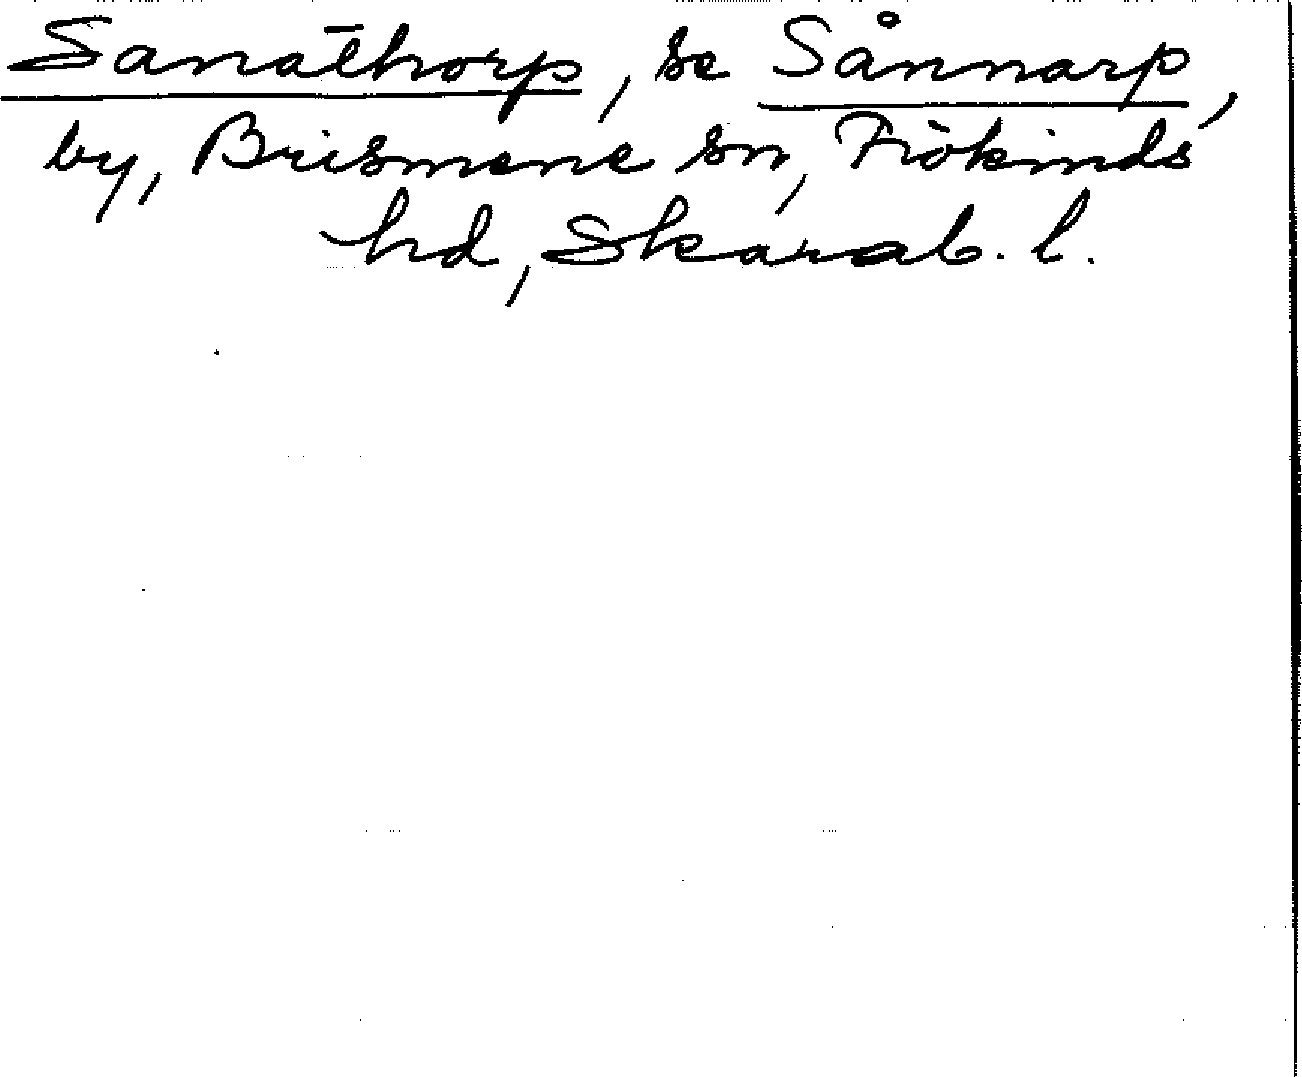 Sanathorp, se Sånnarp,
by, Brismene sn, Frökinds
hd, Skarab. l.